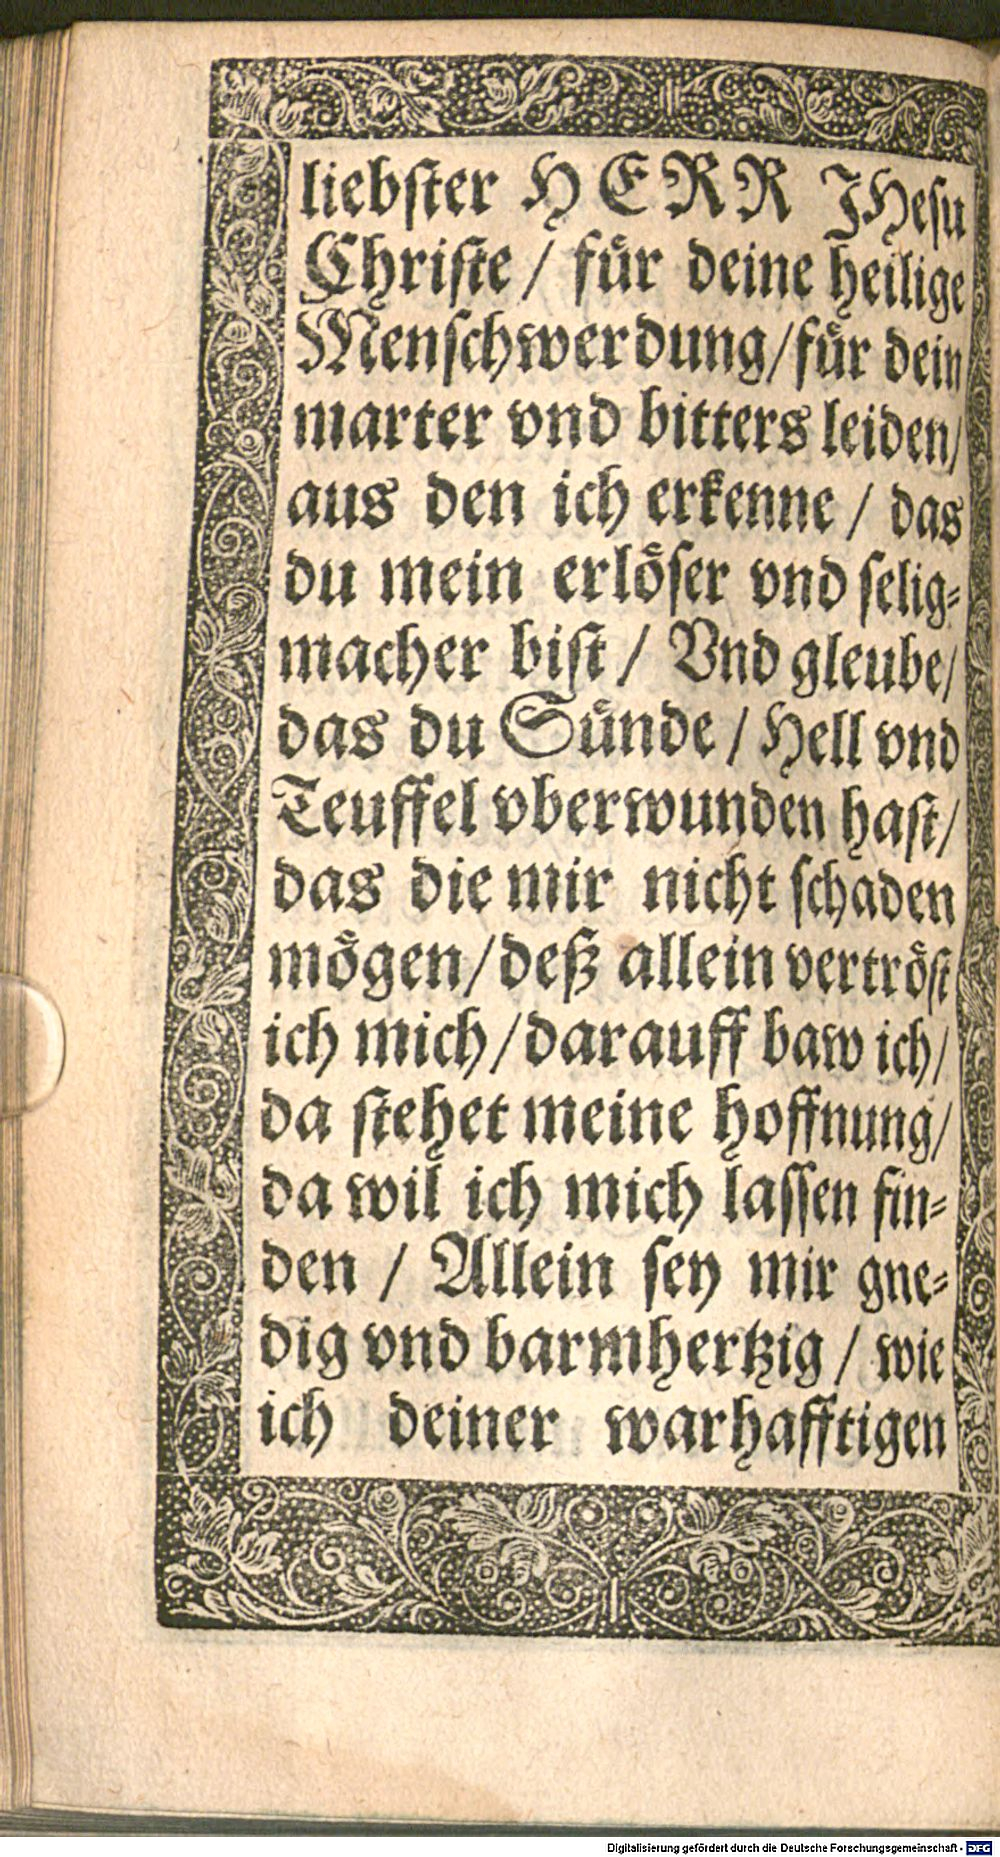 liebſter HERR JHeſu
Chriſte / fuͤr deine heilige
Menſchwerdung/fuͤr dein
marter vnd bitters leiden/
aus den ich erkenne / das
du mein erloͤſer vnd ſelig⸗
macher biſt / Vnd gleube/
das du Suͤnde / Hell vnd
Teuffel vberwunden haſt/
das die mir nicht ſchaden
moͤgen/deß allein vertroͤſt
ich mich/darauff baw ich/
da ſtehet meine hoffnung/
da wil ich mich laſſen fin⸗
den / Allein ſey mir gne⸗
dig vnd barmhertzig / wie
ich deiner warhafftigen
Digitalisierung gefördert durch die Deutsche Forschungsgemeinschaft - DFG